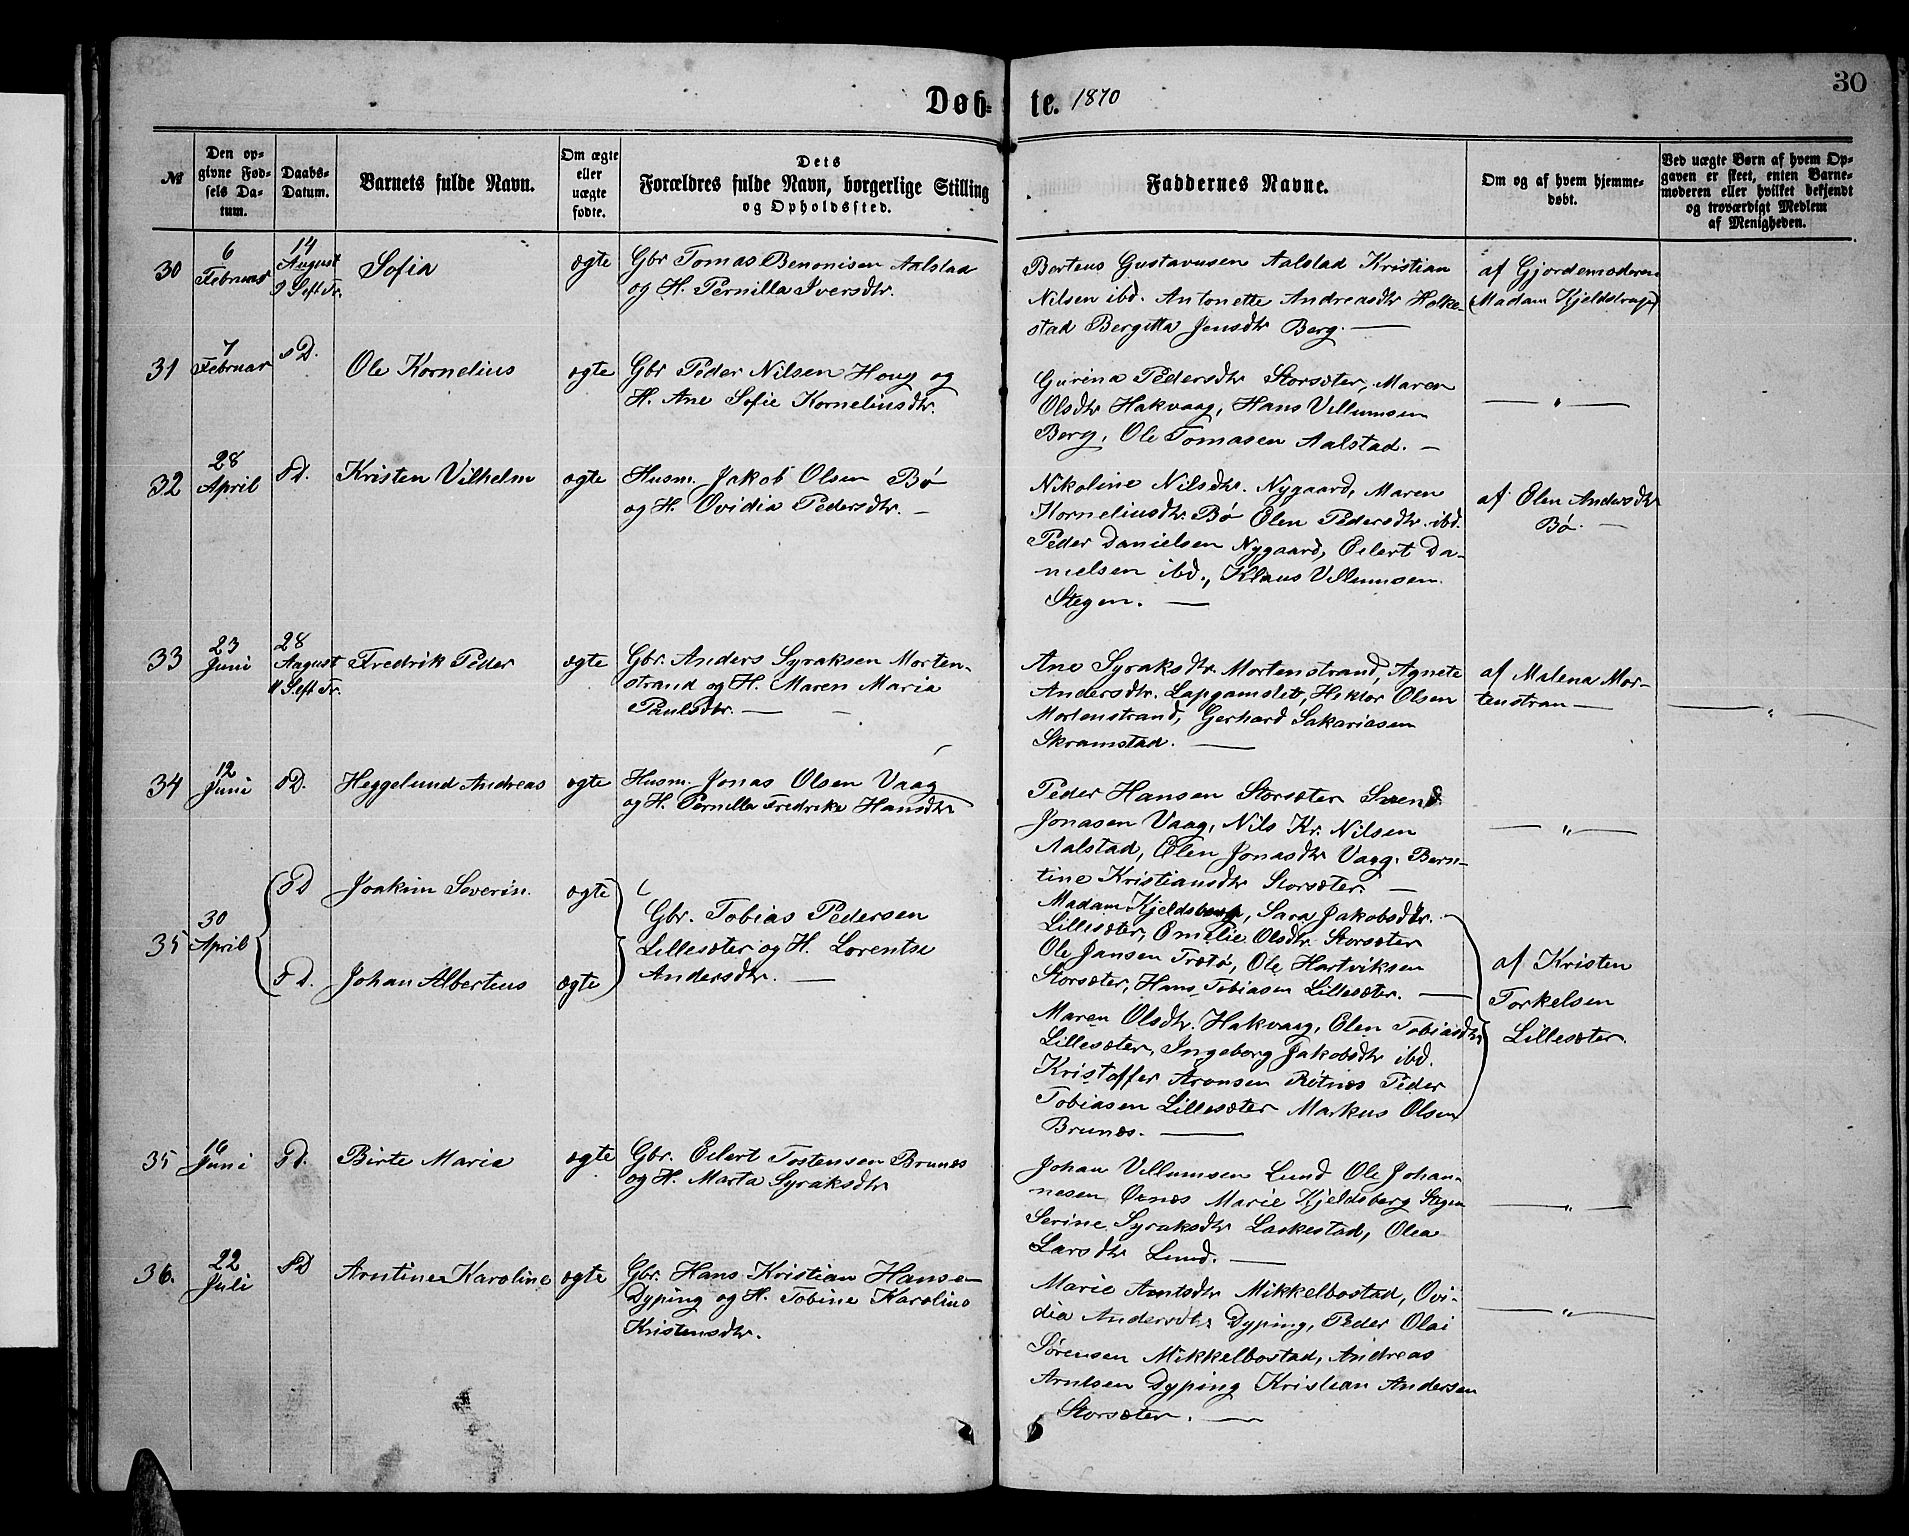 30
Døb=te. 1870
№
Den op-
givne Fød-
sels Da-
tum.
Daabs-
Datum.
Barnets fulde Navn.
Om ægte
eller
uægte
fødte.
Dets
Forældres fulde Navn, borgerlige Stilling
og Opholdssted.
Faddernes Navne.
Om og af hvem hjemme-
døbt.
Ved uægte Børn af hvem Op-
gaven er skeet, enten Barne-
moderen eller hvilket bekjendt
og troværdigt Medlem
af Menigheden.
30
6
Februar
14
August
9 S eft Tr.
Sofia
ægte
Gbr Tomas Benonisen Aalstad
og H. Pernilla Iversdtr.
Berteus Gustavusen Aalstad Kristian
Nilsen ibd. Antonette Andreasdtr Holke-
stad Bergitta Jensdtr Berg. —
af Gjordemoderen
(Madam Kjeldstrup)
31
7
Februar
sD.
Ole Kornelius
ægte
Gbr Peder Nilsen Houg og
H. Ane Sofie Korneliusdtr.
Gurina Pedersdtr Storsæter, Maren
Olsdtr Hakvaag, Hans Villumsen
Berg, Ole Tomasen Aalstad. —
— " —
32
28
April
sD.
Kristen Vilhelm
ægte
Husm. Jakob Olsen Bø
og H. Ovidia Pedersdtr. —
Nikoline Nilsdtr. Nygaard, Maren
Korneliusdtr. Bø Elen Pedersdtr. ibd.
Peder Danielsen Nygaard, Eilert Da-
nielsen ibd., Klaus Villumsen
Stegen. —
af Elen Andersdtr
Bø. —
33
23
Juni
28
August
11 S eft Tr.
Fredrik Peder
ægte
Gbr. Anders Syraksen Morten-
strand og H. Maren Maria
Paulsdtr. — —
Ane Syraksdtr. Mortenstrand, Agnete
Andersdtr. Lapgamslet, Hektor Olsen
Mortenstrand, Gerhard Sakariasen
Skramstad. —
af Malena Mor-
tenstran —
— " —
34
12
Juni
sD.
Heggelund Andreas
ægte
Husm. Jonas Olsen Vaag
og H. Pernilla Fredrike Hansdtr
Peder Hansen Storsæter Svend
Jonasen Vaag, Nils Kr. Nilsen
Aalstad, Elen Jonasdtr Vaag. Bern-
tine Kristiansdtr Storsæter. —
— " —
35
30
April
sD
Joakim Severin.
ægte
sD.
Johan Alberteus
ægte
Gbr. Tobias Pedersen
Lillesæter og H. Lorentse
Andersdtr. —
Madam Kjeldsberg, Sara Jakobsdtr. —
Lillesæter, Emelie Olsdtr. Storsæter
Ole Jansen Trætø, Ole Hartviksen
Storsæter, Hans Tobiasen Lillesæter. —
Maren Olsdtr. Hakvaag, Elen Tobiasdtr
Lillesæter, Ingeborg Jakobsdtr ibd.
Kristoffer Aronsen Rotnes Peder
Tobiasen Lillesæter Markus Olsen
Brunæs. —
af Kristen
Torkelsen
Lillesæter.
35
16
Juni
sD.
Birte Marie
ægte
Gbr. Eilert Tostensen Brunæs
og H. Marta Syraksdtr
Johan Villumsen Lund Ole Johan-
nesen Ornæs Marie Kjeldsberg Stegen
Serine Syraksdtr Laskestad, Olea
Larsdtr Lund. —
— " —
36.
22
Juli
sD
Arntine Karoline
ægte
Gbr. Hans Kristian Hanse—
Dyping og H. Tobine Karolius
Kristensdtr.
Marie Arntsdtr Mikkelbostad, Ovi-
dia Andersdtr Dyping, Peder Olai
Sørensen Mikkelbostad, Andreas
Arntsen Dyping Kristian Andersen
Storsæter. —
— " —